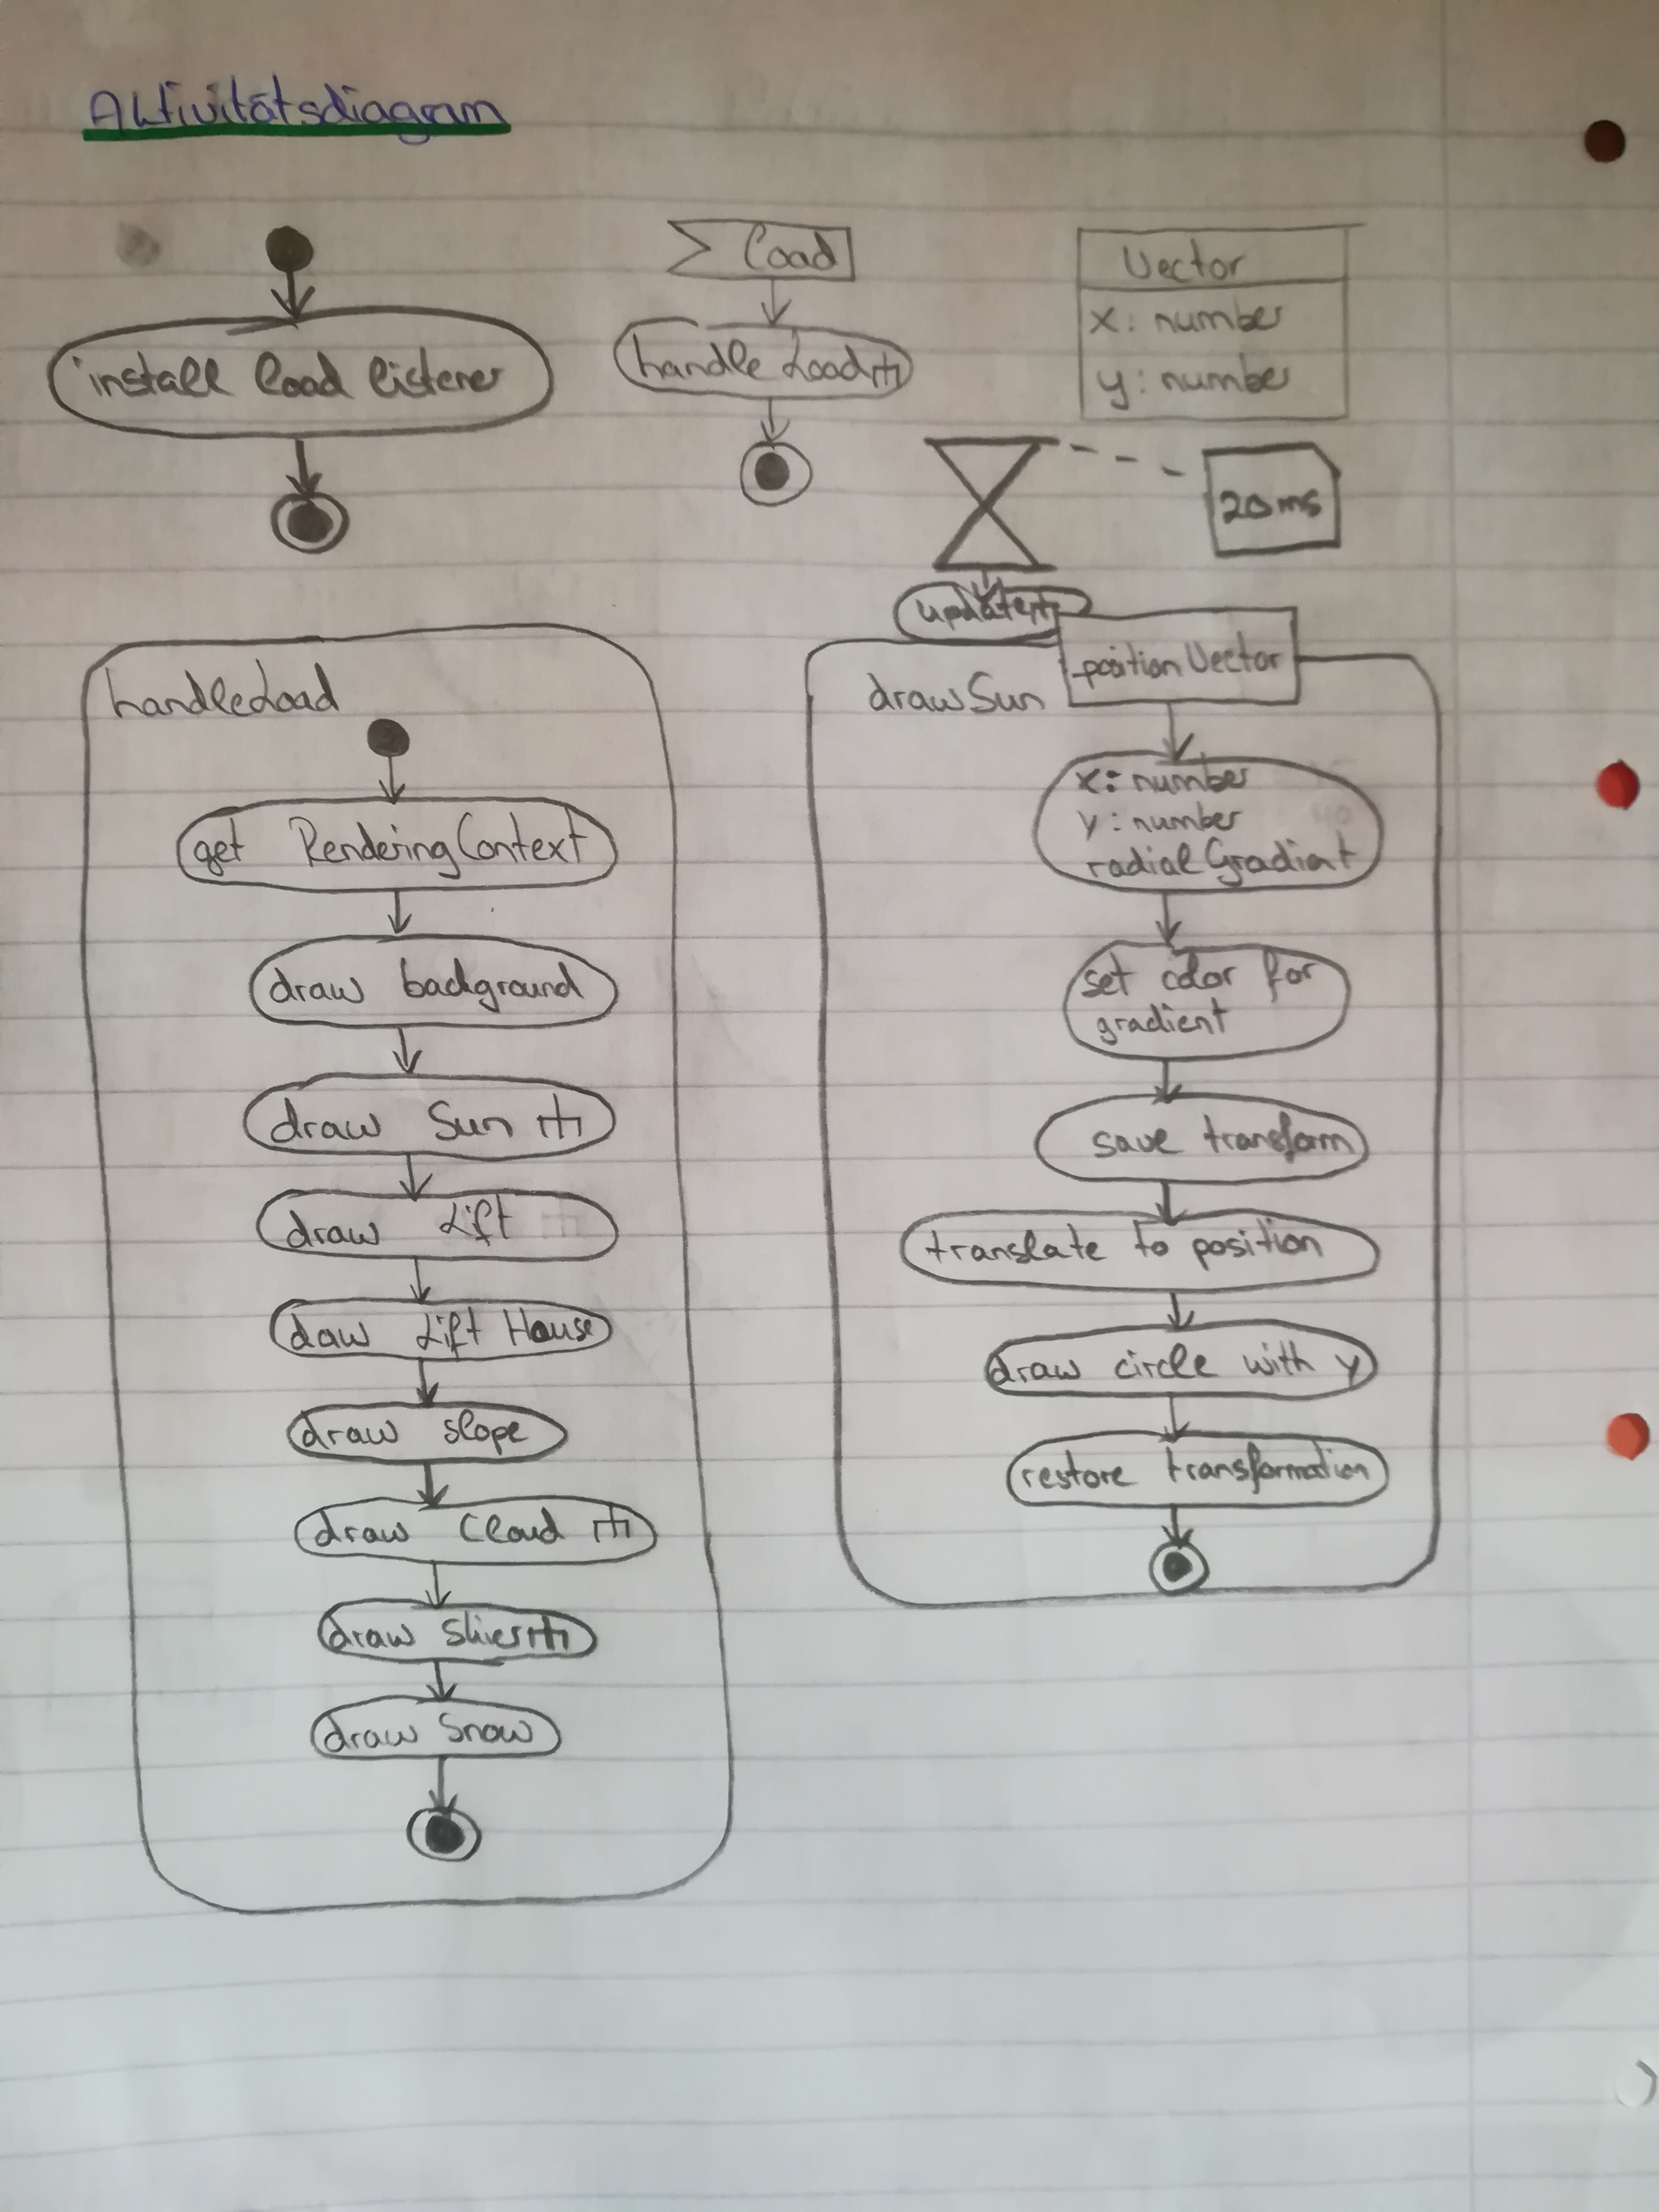 Aktivitätsdiagram
install load listener
load
handleLoad
Vector
x: number
y: number
20ms
update
handleLoad
get RenderingContext
draw background
draw Sun
draw Lift
daw Lift House
draw slope
draw Cloud
draw skier
draw Snow
drawSun
_position Vector
x: number
y: number
radialGradient
set color for
gradient
save transform
translate to position
draw circle with y
restore transformation